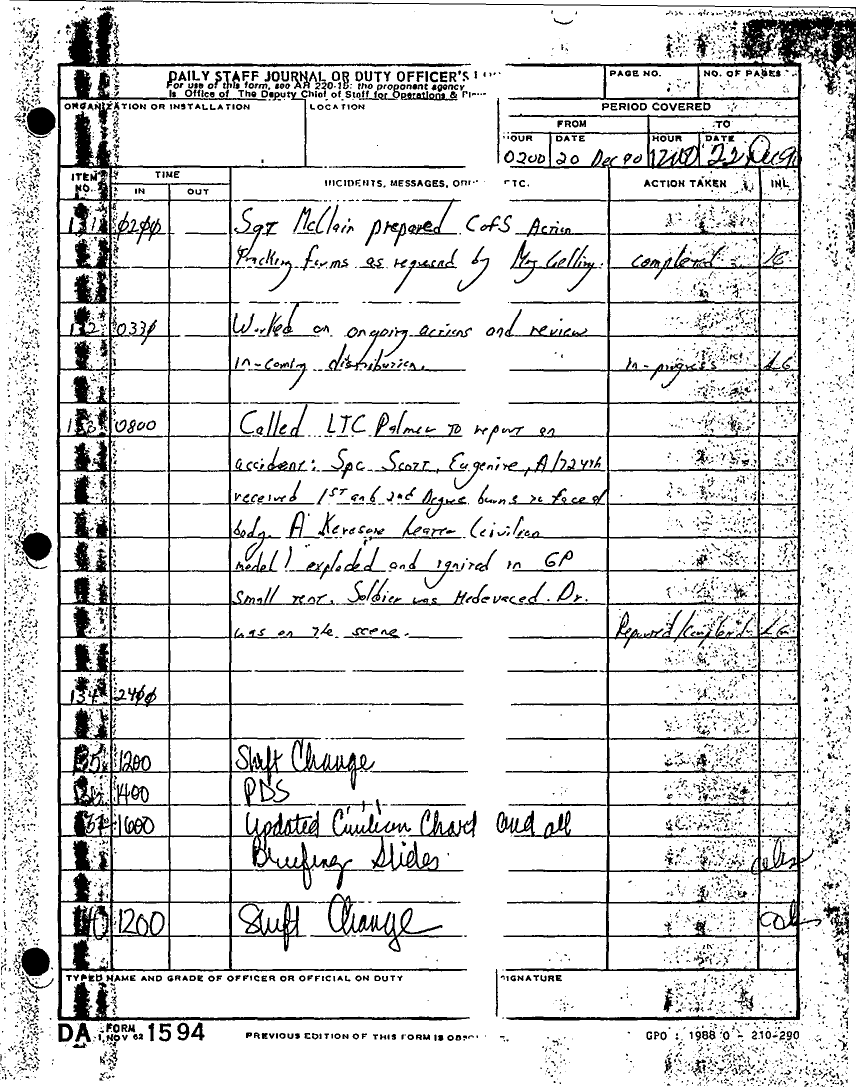 DAILY STAFF JOURNAL OR DUTY OFFICER'S
For use of this form, see AR 220-15; the proponent agency
is Office of The Deputy Chief of Staff for Operations &
PAGE NO.
NO. OF PAGES
ORGANIZATION OR INSTALLATION
LOCATION
PERIOD COVERED
FROM
TO
HOUR DATE HOUR DATE
0200 20 Dec 90 1200 22 Dec 90
ITEM NO.
TIME
IN OUT
INCIDENTS, MESSAGES, ETC.
ACTION TAKEN
INL
131 0200 Sgt McClain prepared CofS Action
Tracking forms as requested by Maj Gelling. completed
132 0330 Worked on ongoing actions and review
in-coming distribution. in-progress LG
133 0800 Called LTC Palmer to report an
accident: Spc Scott, Eugenire, A/724th
received 1st and 2nd Degree burns to face &
body. A Kerosene heater (civilian
model) exploded and ignited in GP
small tent. Soldier was Medevaced. Dr.
was on the scene. Reported/completed LG
134 2400
135 1200 Shift Change
136 1400 PDS
137 1600 Updated Civilian Chart and all
Briefing Slides
140 1200 Shift Change
TYPED NAME AND GRADE OF OFFICER OR OFFICIAL ON DUTY
SIGNATURE
DA FORM 1594
1 NOV 62
PREVIOUS EDITION OF THIS FORM IS
GPO : 1988 O - 210-290